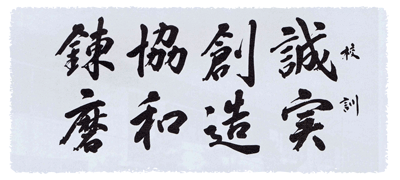 校訓
誠実
創造
協和
錬磨